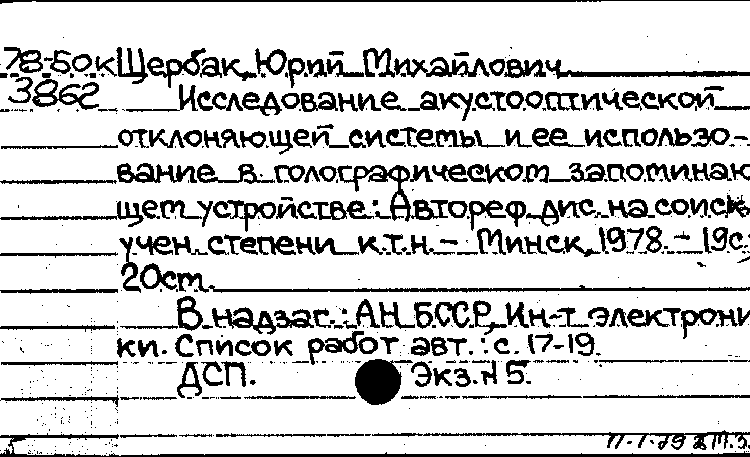 78-50к Щербак, Юрий Михайлович
3862 Исследование акустооптической
отклоняющей системы и ее использо-
вание в голографическом запоминаю
щем устройстве: Автореф. дис. на соиск.
учен. степени к.т.н. - Минск, 1978. - 19с.
20см.
В надзаг.: АН БССР, Ин-т электрони
ки. Список работ авт.: с. 17-19.
ДСП. Экз. № 5.